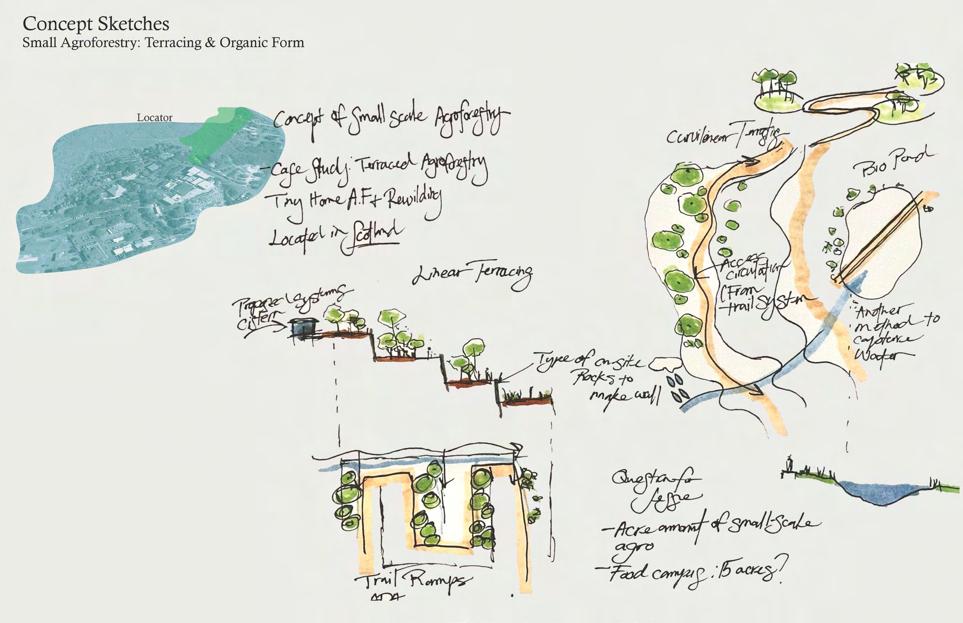 Concept Sketches
Small Agroforestry: Terracing & Organic Form
Locator
Concept of Small Scale Agroforestry
-Case Study: Terraced Agroforestry
-Tiny Home A.F + Rewilding
Located in Scotland
Linear Terracing
Cistern
Type of on-site
Rocks to
make wall
Trail Ramps
ADA
Curvilinear
Bio Pond
Access
Circulation
(From
trail System
Another
method to
Water
Question for
-Acre amount of small-scale
agro
-Food campus : 15 acres?